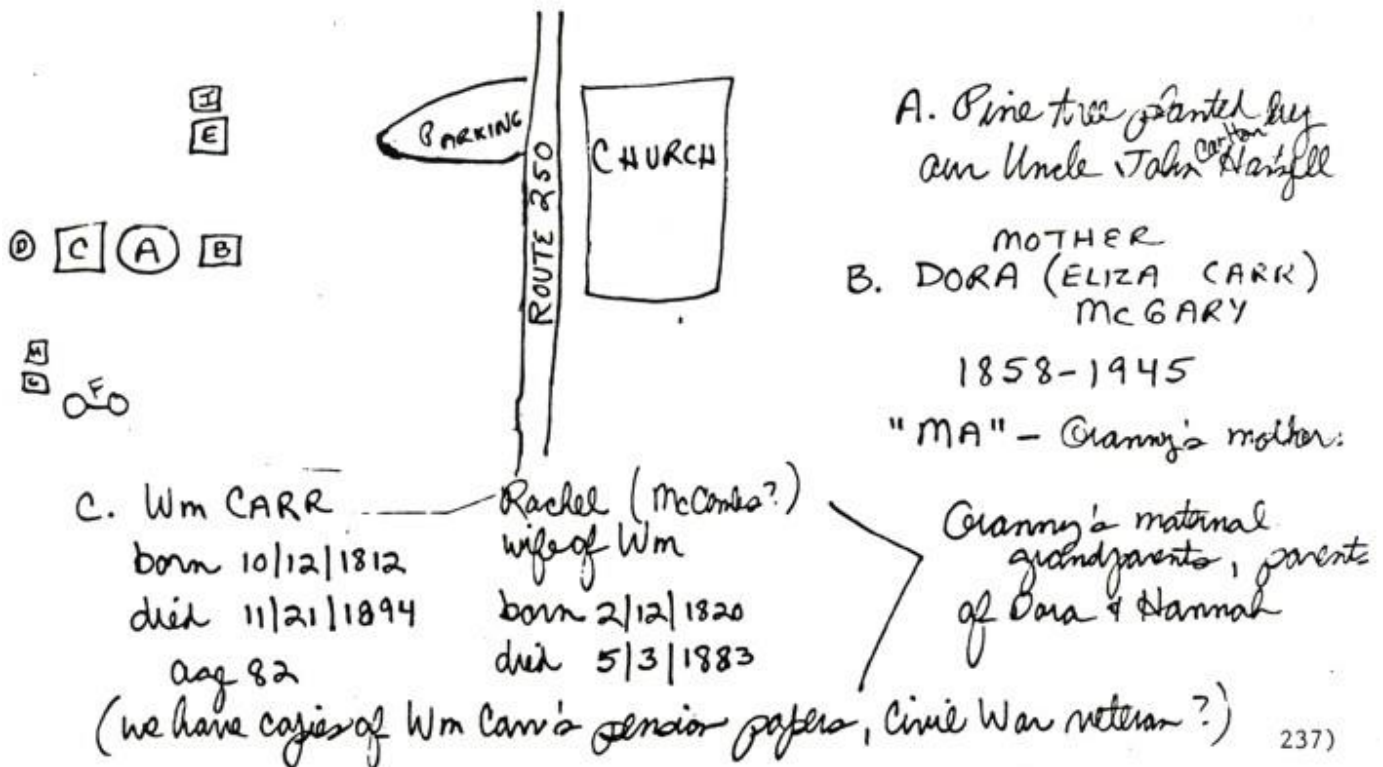 I
E
PARKING
ROUTE 250
CHURCH
D C A B
H
G
F
A. Pine tree planted by
our Uncle John Carlton
MOTHER
B. DORA (ELIZA CARR)
McGARY
1858-1945
"MA" - Granny's mother:
C. Wm CARR
born 10/12/1812
died 11/21/1894
age 82
Rachel (McCombs?)
wife of Wm
born 2/12/1820
died 5/3/1883
Granny's maternal
grandparents, parents
of Dora & Hannah
(we have copies of Wm Carr's pension papers, Civil War veteran?)
237)